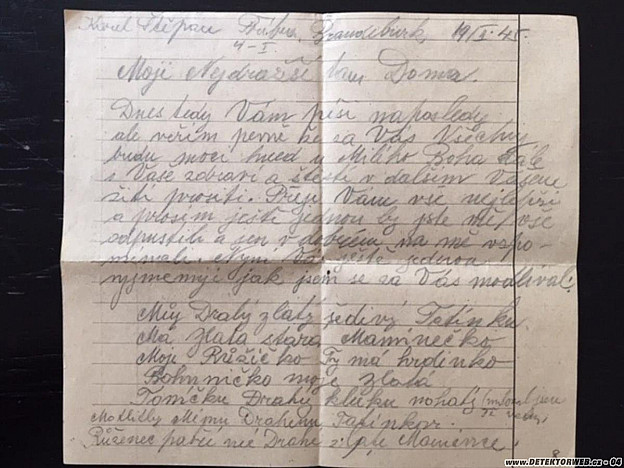 Karel Štěpán Brandeburk 19/I. 45.
4-I.
Moji Nejdražší tam Doma.
Dnes tedy Vám píši naposledy
ale věřím pevně že za Vás Všechny
budu moci hned u Milého Boha dále
o Vaše zdraví a štěstí v dalším Vašem
žití prositi. Přeji Vám vše nejlepší
a prosím ještě jednou by jste mě vše
odpustili a jen v dobrém na mě vzpo-
mínali. Nyní Vás ještě jednou
vyjmenuji jak jsem se za Vás modlíval.
Můj Drahý zlatý šedivý Tatínku
Má Zlatá stará Maminečko
Moje Růžičko Ty má hrdinko
Bohunničko moje zlatá
Toníčku Drahý kluku nohatý
Modlitby Mému Drahému Tatínkovi
Růženec patří mé Drahé Zlaté Mamince.
www.DETEKTORWEB.cz - 04